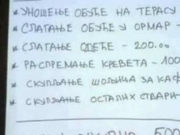 * УНОШЕЊЕ ОБУЋЕ НА ТЕРАСУ
* СЛАГАЊЕ ОБУЋЕ У ОРМАР -
* СЛАГАЊЕ ОДЕЋЕ - 200.00
* РАСПРЕМАЊЕ КРЕВЕТА - 100
* СКУПЉАЊЕ ШОЉИЦА ЗА КАФ
* СКУПЉАЊЕ ОСТАЛИХ СТВАРИ -